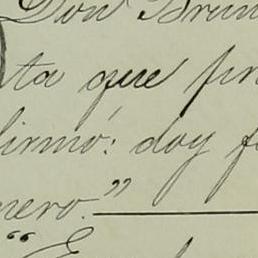 Don Brun
ta que fir
firmó: doy f
nero."
"E